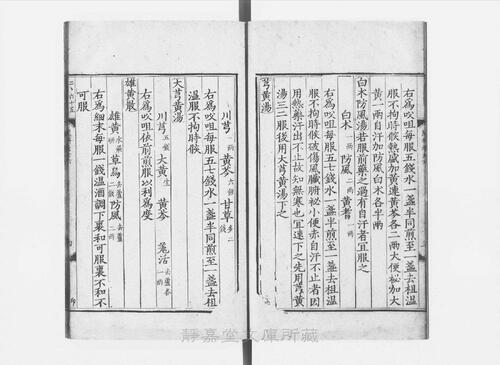 右爲㕮咀每服五七錢水一盞半同煎至一盞去柤温
服不拘時候熱盛加黄連黄芩各二兩大便秘加大
黄一兩自汗加防風白术各半兩
白术防風湯若服前藥之過有自汗者宜服之
白术 防風 二兩 黄耆 一兩
右爲㕮咀每服五七錢水一盞半煎至一盞去柤温
服不拘時候破傷風臟腑秘小便赤自汗不止者因
用熱藥汗出不止故知無寒也宜速下之先用芎黄
湯三二服後用大芎黄湯下之
芎黄湯
川芎 一兩 黄芩 六錢 甘草 二錢
右爲㕮咀每服五七錢水一盞半同煎至一盞去柤
温服不拘時候
大芎黄湯
川芎 五錢 大黄 生 黄芩 羌活 去蘆各一兩
右爲㕮咀依前煎服以利爲度
雄黄散
雄黄 草烏 防風 二兩
右爲細末每服一錢温酒調下裏和可服裏不和不
可服
靜嘉堂文庫所藏